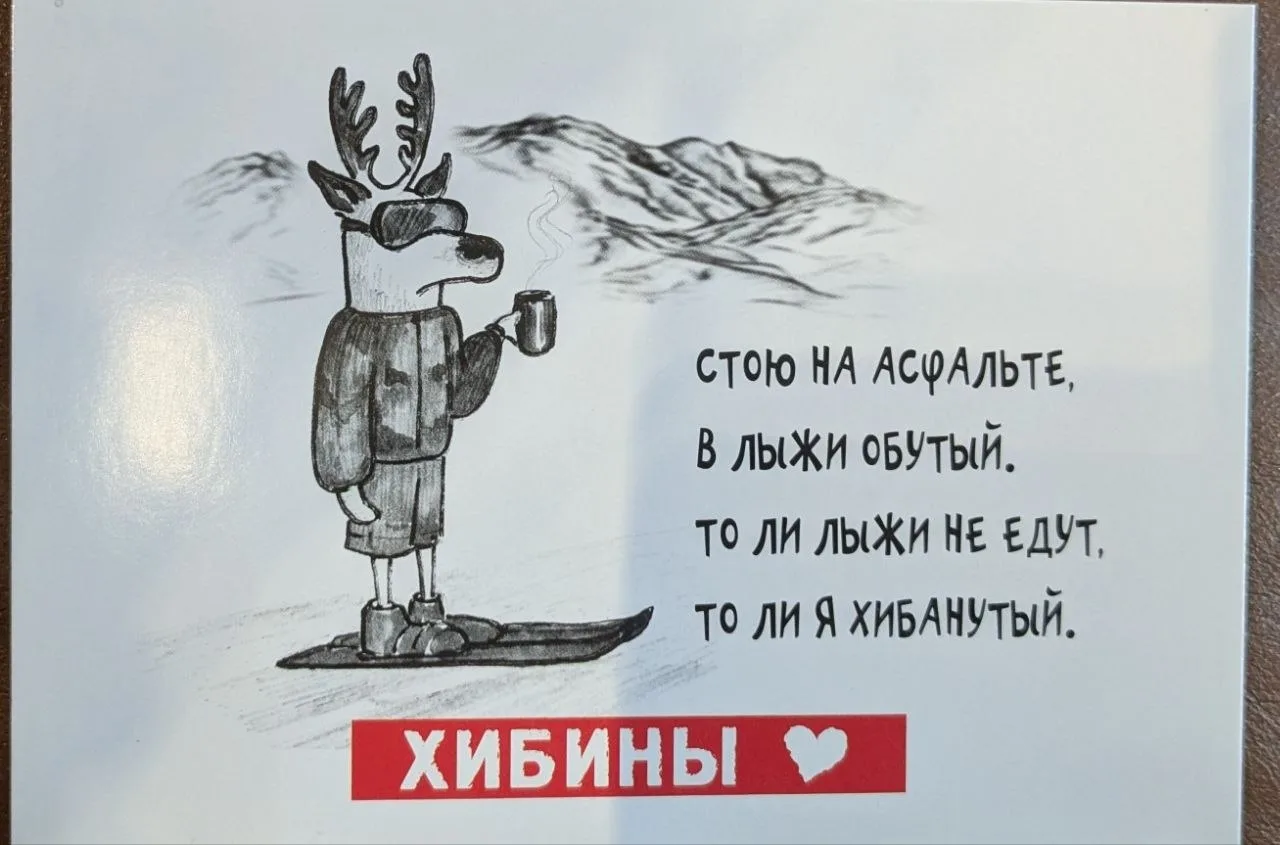 СТОЮ НА АСФАЛЬТЕ,
В ЛЫЖИ ОБУТЫЙ.
ТО ЛИ ЛЫЖИ НЕ ЕДУТ,
ТО ЛИ Я ХИБАНУТЫЙ.
ХИБИНЫ